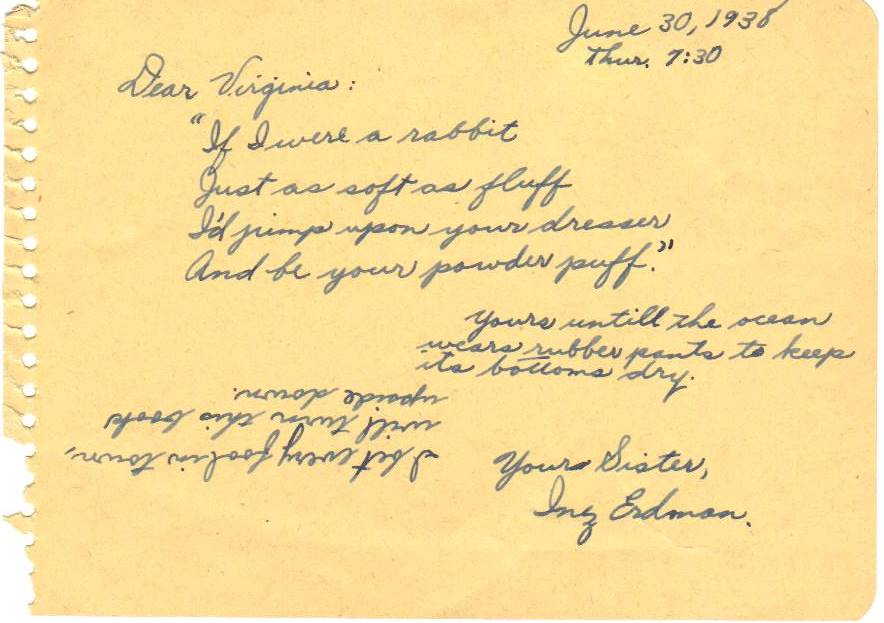 June 30, 1938
Thur. 7:30
Dear Virginia:
"If I were a rabbit
Just as soft as fluff
I'd jump upon your dresser
And be your powder puff."
Yours untill the ocean
wears rubber pants to keep
its bottoms dry.
Yours Sister,
Inez Erdman.
I bet every fool in town,
will turn this book
upside down.